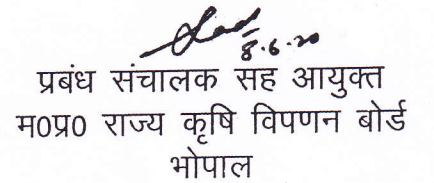 8.6.20
प्रबंध संचालक सह आयुक्त
म0प्र0 राज्य कृषि विपणन बोर्ड
भोपाल